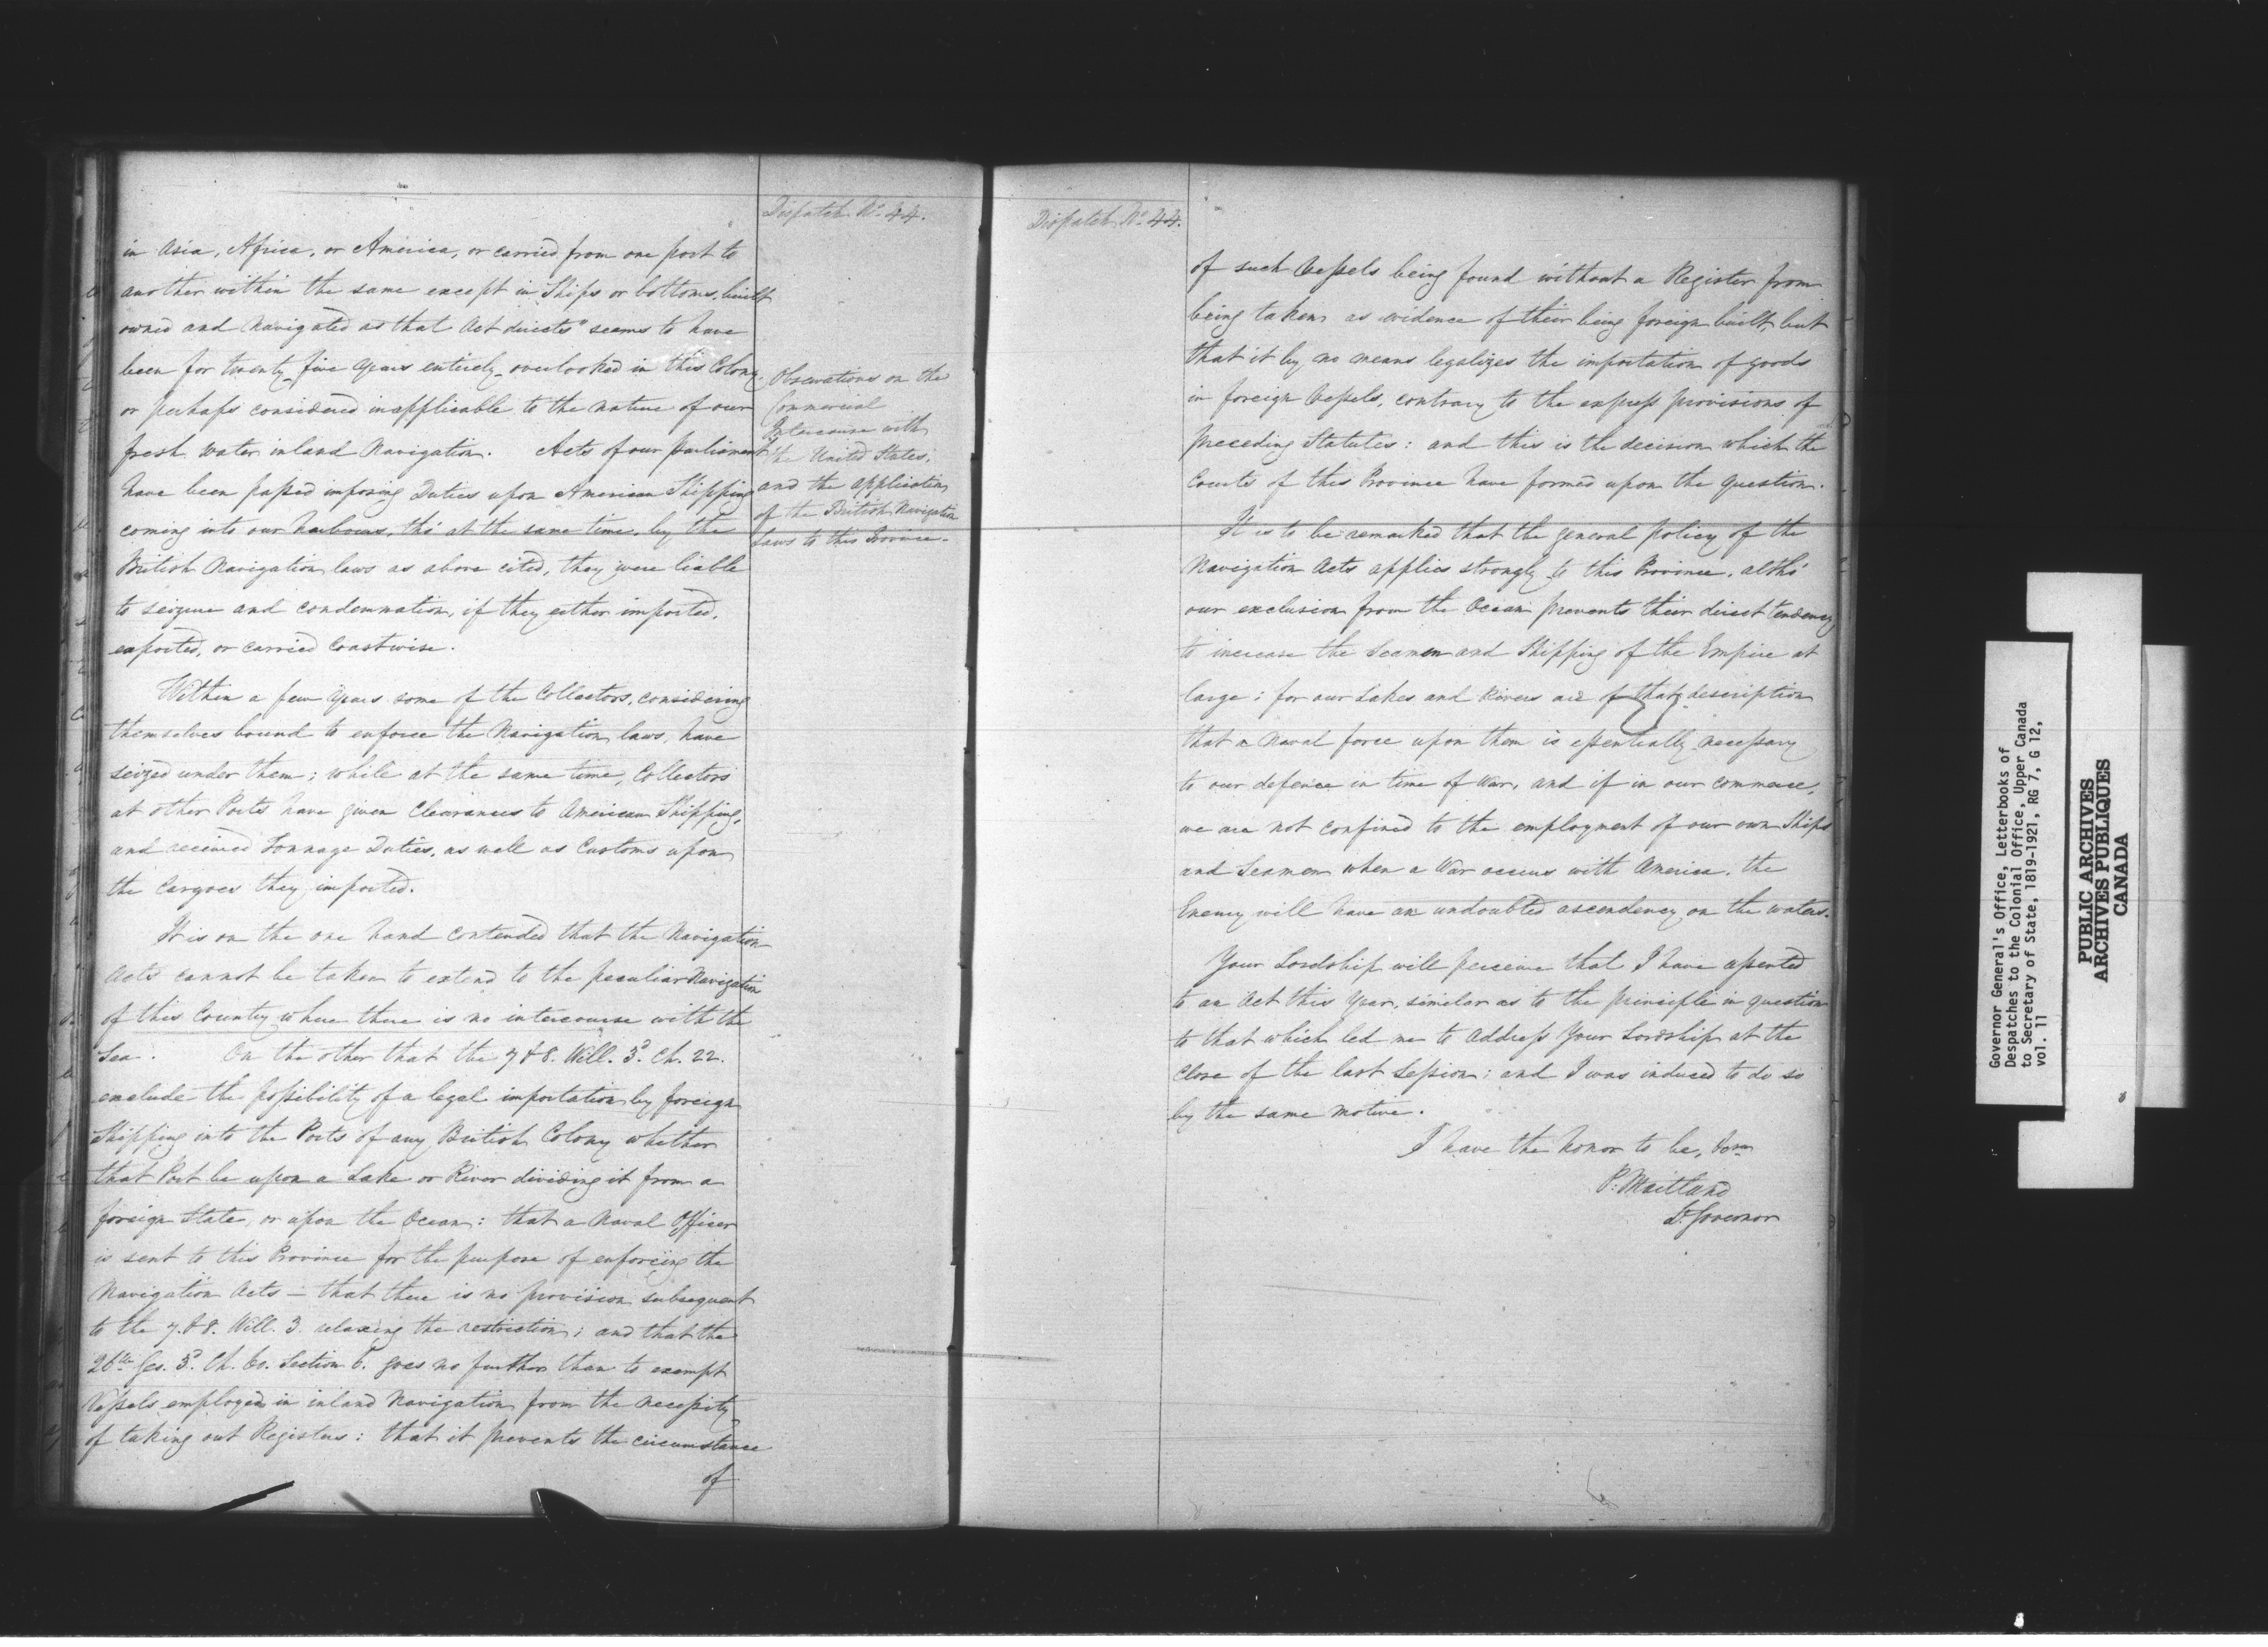 Dispatch No. 44.
in Asia, Africa, or America, or carried from one port to
another within the same except in Ships or bottoms, built
owned and navigated as that Act directs" seems to have
been for twenty-five years entirely overlooked in this Colony.
or perhaps considered inapplicable to the nature of our
fresh water inland Navigation. Acts of our parliament
have been passed imposing Duties upon American Shipping
coming into our harbours, tho' at the same time, by the
British Navigation laws as above cited, they were liable
to seizure and condemnation, if they either imported,
exported, or carried Coastwise.
Observations on the
Commercial
Intercourse with
the United States,
and the application
of the British Navigation
Laws to this Province.
Within a few years some of the Collectors, considering
themselves bound to enforce the Navigation laws, have
seized under them; while at the same time, Collectors
at other Ports have given Clearances to American Shipping,
and received Tonnage Duties, as well as Customs upon
the Cargoes they imported.
It is on the one hand contended that the Navigation
Acts cannot be taken to extend to the peculiar Navigation
of this Country where there is no intercourse with the
Sea. On the other that the 7 & 8. Will. 3d. Ch. 22.
exclude the possibility of a legal importation by foreign
Shipping into the Ports of any British Colony whether
that Port be upon a Lake or River dividing it from a
foreign State, or upon the Ocean: that a Naval Officer
is sent to this Province for the purpose of enforcing the
Navigation Acts — that there is no provision subsequent
to the 7. & 8. Will. 3. relaxing the restriction; and that the
26th Geo. 3d. Ch. 60. Section 6. goes no further than to exempt
Vessels employed in inland Navigation from the necessity
of taking out Registers: that it prevents the circumstance
of
Dispatch No. 44.
of such Vessels being found without a Register from
being taken as evidence of their being foreign built, but
that it by no means legalizes the importation of goods
in foreign Vessels, contrary to the express provisions of
preceding Statutes: and this is the decision which the
Courts of this Province have formed upon the question.
It is to be remarked that the general policy of the
Navigation Acts applies strongly to this Province, altho'
our exclusion from the Ocean prevents their direct tendency
to increase the Seamen and Shipping of the Empire at
large; for our Lakes and Rivers are of that description
that a Naval force upon them is essentially necessary
to our defence in time of War, and if in our commerce,
we are not confined to the employment of our own Ships
and Seamen when a War occurs with America, the
Enemy will have an undoubted ascendency on the waters.
Your Lordship will perceive that I have assented
to an Act this Year, similar as to the principle in question
to that which led me to address Your Lordship at the
Close of the last Session; and I was induced to do so
by the same motive.
I have the honor to be, &ca
P. Maitland
Lt. Governor
Governor General's Office, Letterbooks of
Despatches to the Colonial Office, Upper Canada
to Secretary of State, 1819-1921, RG 7, G 12,
vol. 11
PUBLIC ARCHIVES
ARCHIVES PUBLIQUES
CANADA